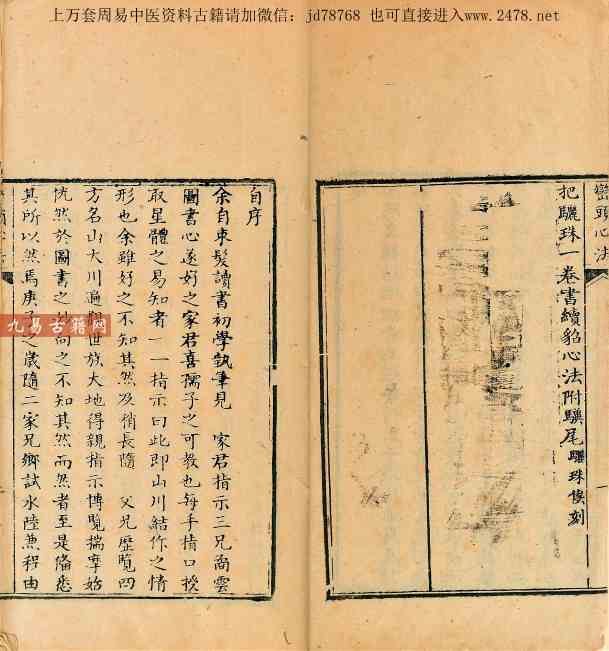 上万套周易中医资料古籍请加微信：jd78768 也可直接进入www.2478.net
巒頭心法
把驪珠一卷書續貂心法附驥尾 驪珠俟刻
自序
余自束髮讀書初學執筆見 家君指示三兄尚雲
圖書心遂好之家君喜孺子之可教也每手指口授
取星體之易知者一一指示曰此即山川結作之情
形也余雖好之不知其然及稍長隨 父兄歷覽四
方名山大川遍觀世族大地得親指示博覽揣摩始
恍然於圖書之向之不知其然而然者至是俻悉
其所以然焉庚子之歲隨二家兄鄉試水陸兼程由
九易古籍网